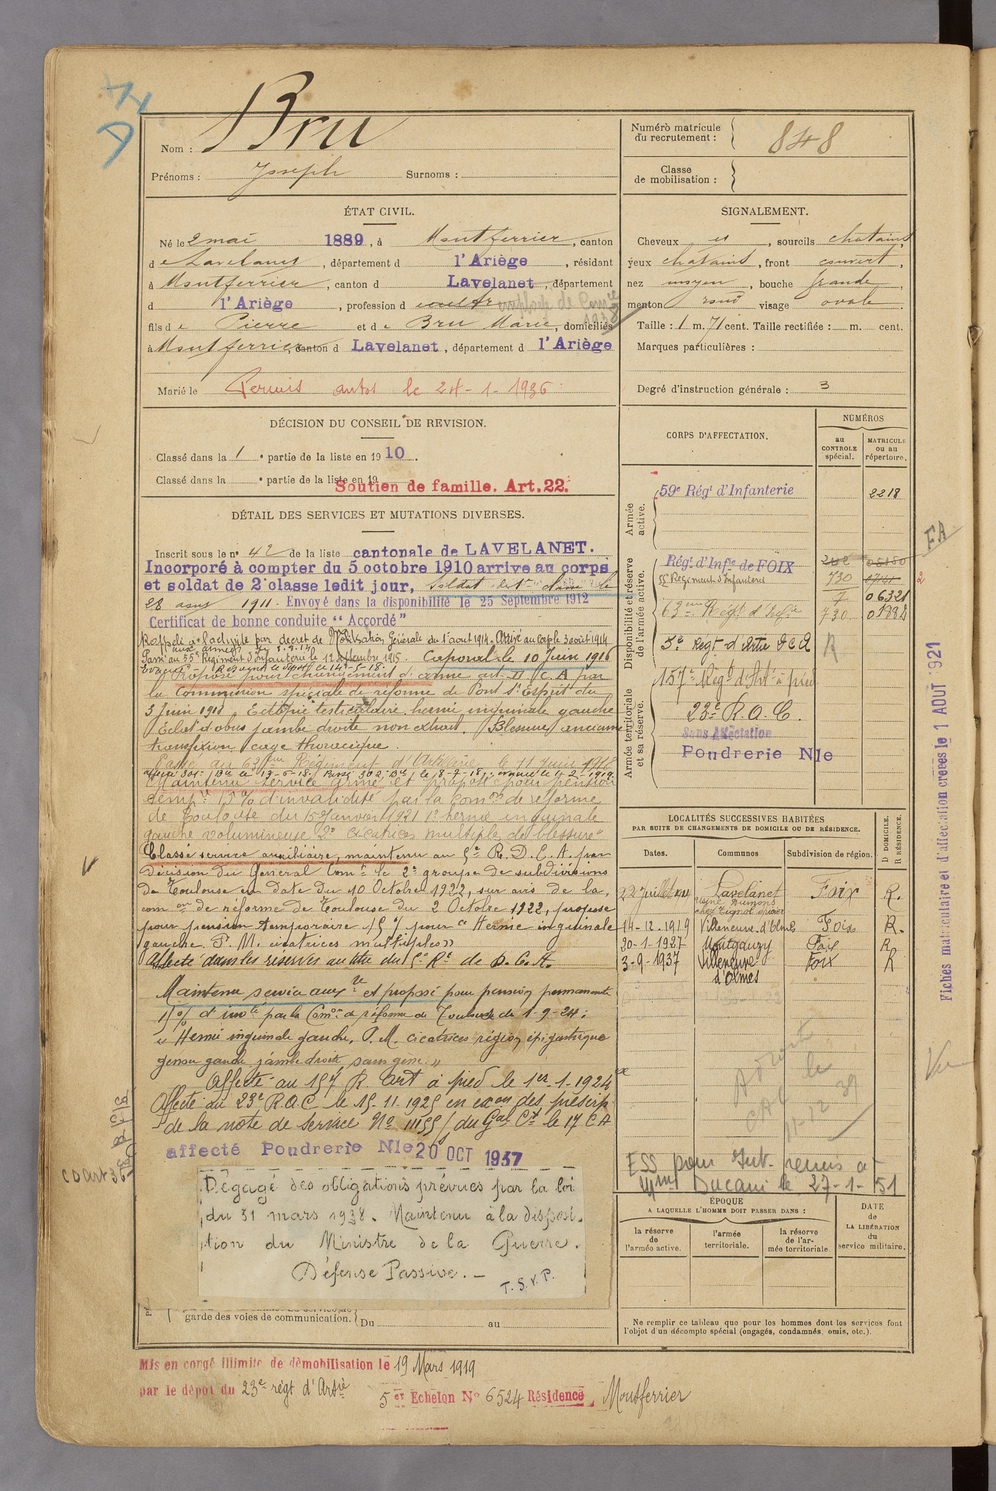 Nom : Bru
Prénoms : Joseph Surnoms :
Numéro matricule du recrutement : 848
Classe de mobilisation :
ÉTAT CIVIL.
Né le 2 mai 1889, à Montferrier, canton
de Lavelanet, département d l'Ariège, résidant
à Montferrier, canton d Lavelanet, département
d l'Ariège, profession d
fils de Pierre et de Bru Marie, domiciliés
à Montferrier, canton d Lavelanet, département d l'Ariège
Marié le Permis autos le 24-1-1936
SIGNALEMENT.
Cheveux et, sourcils chatains,
yeux chatains, front couvert,
nez moyen, bouche grande,
menton rond visage ovale.
Taille : 1 m. 71 cent. Taille rectifiée : m. cent.
Marques particulières :
Degré d'instruction générale : 3
DÉCISION DU CONSEIL DE REVISION.
Classé dans la 1e partie de la liste en 1910.
Classé dans la e partie de la liste en 19
Soutien de famille. Art. 22.
DÉTAIL DES SERVICES ET MUTATIONS DIVERSES.
Inscrit sous le n° 42 de la liste cantonale de LAVELANET.
Incorporé à compter du 5 octobre 1910 arrive au corps
et soldat de 2e classe ledit jour, soldat de 1re classe le
28 1911. Envoyé dans la disponibilité le 25 Septembre 1912
Certificat de bonne conduite "Accordé"
Rappelé à l'activité par décret de Mobilisation Générale du 1er aout 1914. Arrivé au corps le 3 aout 1914
Passé au 55e Régiment d'infanterie le 12 Septembre 1915. Caporal le 10 Juin 1916
Proposé pour changement d'arme art. II C.A par
la Commission spéciale de réforme de Pont St Esprit du
3 Juin 1918. Ectopie testiculaire hernie inguinale gauche
Eclat d'obus jambe droite non extrait. Blessure ancienne
transfixion cage thoracique.
Passé au 63e Régiment d'Artillerie le 11 Juin 1918
Maintenu service armé et proposé pour pension
temp. 15% d'invalidité par la Comon de réforme
de Toulouse du 15 Janvier 1921 1° hernie inguinale
gauche volumineuse 2° cicatrices multiples de blessures
Classé service auxiliaire, maintenu au 5e R. D. C. A. par
décision du Général Comt le 2e groupe de subdivisions
de Toulouse en date du 10 Octobre 1922, sur avis de la
comon de réforme de Toulouse du 2 Octobre 1922, proposé
pour pension temporaire 15% pour "Hernie inguinale
gauche. P. M. cicatrices multiples"
Affecté dans les réserves au titre du 5e Rt de D. C. A.
Maintenu service auxre et proposé pour pension permanente
15% d'invté par la Comon de réforme de Toulouse du 1-9-24 :
"Hernie inguinale gauche, P. M. cicatrices région épigastrique
genou gauche jambe droite sans gêne"
Affecté au 157e R. Art à pied le 1er-1-1924
Affecté au 23e R.A.C le 15.11.1925 en exon des prescrip
de la note de service No 11155/ du Gal Ct le 17 CA
affecté Poudrerie Nle 20 OCT 1937
Dégagé des obligations prévues par la loi
du 31 mars 1928. Maintenu à la disposi-
tion du Ministre de la Guerre.
Défense Passive. —
T. S. V. P.
garde des voies de communication. Du au
CORPS D'AFFECTATION.
NUMÉROS
au CONTRÔLE spécial.
MATRICULE ou au répertoire.
Armée active.
59e Régt d'Infanterie 2218
Disponibilité et réserve de l'armée active.
Régt d'Infie de FOIX
55e Régiment d'Infanterie 730
06321
63ème Régt d'Artie 730 01882
5e Regt d'Artie D C A R
Armée territoriale et sa réserve.
157e Régt d'Art à pied
23e R.A.C.
Sans Affectation
Poudrerie Nle
LOCALITÉS SUCCESSIVES HABITÉES
PAR SUITE DE CHANGEMENTS DE DOMICILE OU DE RÉSIDENCE.
Dates. Communes Subdivision de région. D DOMICILE. R RÉSIDENCE.
22 Juillet Lavelanet Foix R.
14-12-1919 Villeneuve d'Olmes Foix R.
30-1-1927 Montgauzy Foix R
3-9-1937 Villeneuve d'Olmes Foix R
ESS pour Int. remis à
Ducani le 27-1-51
ÉPOQUE
A LAQUELLE L'HOMME DOIT PASSER DANS :
la réserve de l'armée active.
l'armée territoriale.
la réserve de l'armée territoriale
DATE de LA LIBÉRATION du service militaire.
Ne remplir ce tableau que pour les hommes dont les services font
l'objet d'un décompte spécial (engagés, condamnés, omis, etc.).
Mis en congé illimité de démobilisation le 19 Mars 1919
par le dépôt du 23e régt d'Artie
5e Echelon No 6524 Résidence, Montferrier
FA
Fiches matriculaire et d'affectation créées le 1 AOUT 1921